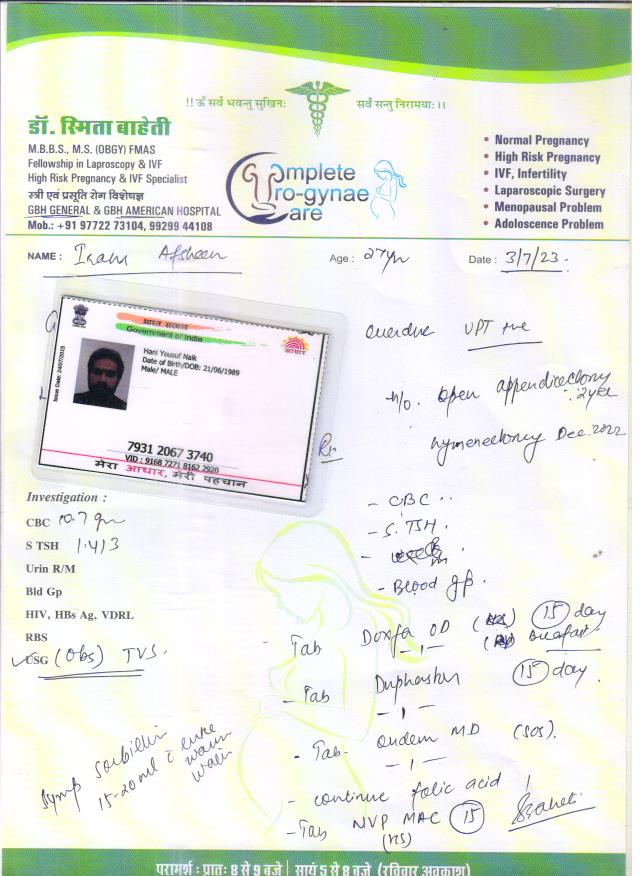 !! ॐ सर्वे भवन्तु सुखिनः सर्वे सन्तु निरामयाः !!
डॉ. स्मिता बाहेती
M.B.B.S., M.S. (OBGY) FMAS
Fellowship in Laproscopy & IVF
High Risk Pregnancy & IVF Specialist
स्त्री एवं प्रसूति रोग विशेषज्ञ
GBH GENERAL & GBH AMERICAN HOSPITAL
Mob.: +91 97722 73104, 99299 44108
Complete
Uro-gynae
Care
• Normal Pregnancy
• High Risk Pregnancy
• IVF, Infertility
• Laparoscopic Surgery
• Menopausal Problem
• Adoloscence Problem
NAME : Iram Afsheen Age : 27yr Date : 3/7/23.
भारत सरकार
Government of India
आधार
Issue Date: 24/07/2015
Hani Yousuf Naik
Date of Birth/DOB: 21/06/1989
Male/ MALE
7931 2067 3740
VID : 9168 7271 8162 2920
मेरा आधार, मेरी पहचान
overdue UPT +ve
h/o. open appendicectomy
hymenectomy Dec. 2022
Rx
Investigation :
CBC 10.7 gm
S TSH 1.413
Urin R/M
Bld Gp
HIV, HBs Ag, VDRL
RBS
USG (Obs) TVS.
- CBC
- S. TSH.
- Blood gp.
- Tab Doxfa OD 15 day
Breakfast
- Tab Duphaston 15 day.
- Tab. Ondem MD (SOS).
- continue folic acid
- Tab NVP MAC 15
(HS)
Syrup Sorbilin
15-20 ml c luke
warm
water
परामर्श : प्रातः 8 से 9 बजे | सायं 5 से 8 बजे (रविवार अवकाश)